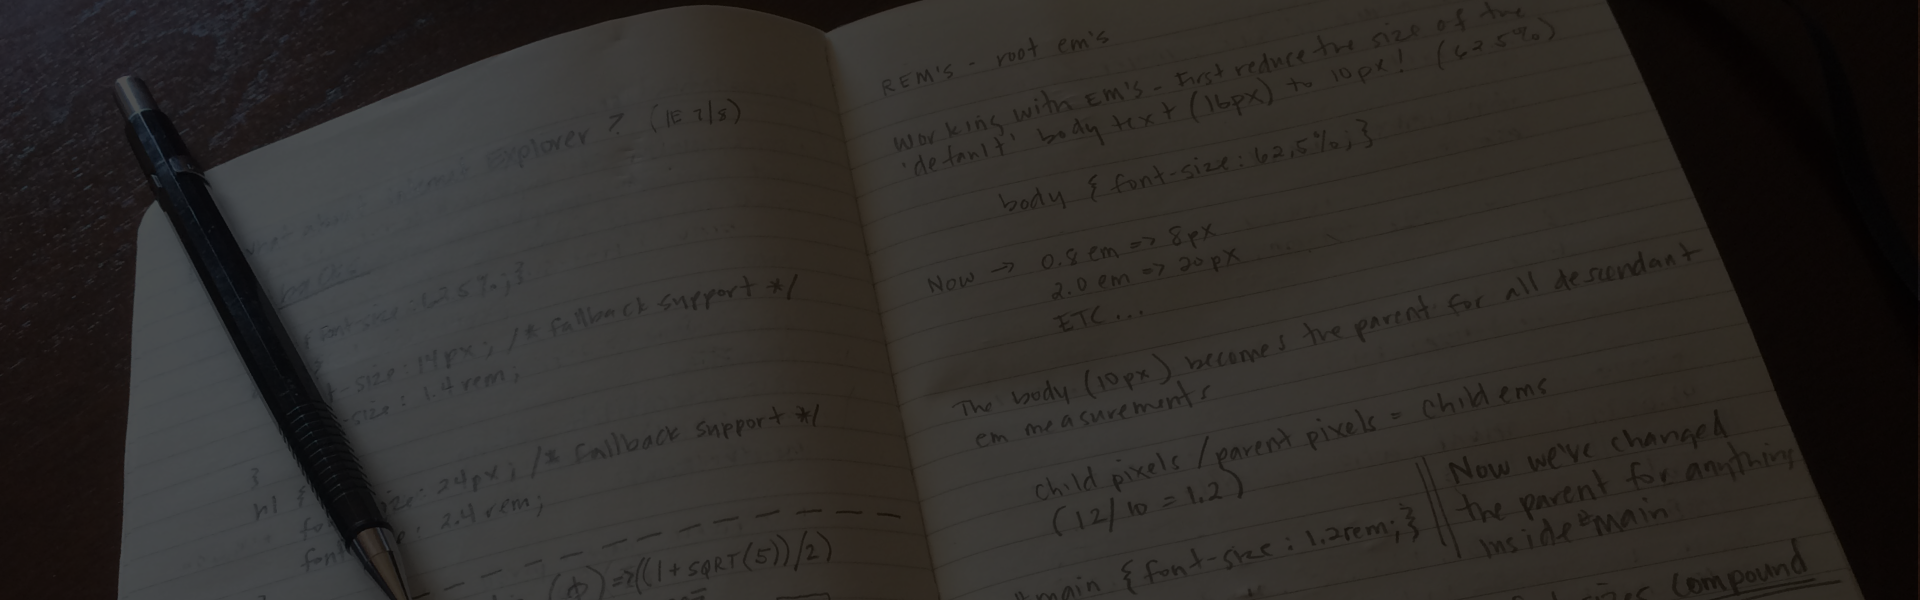 explorer ? (IE 7/8)
font-size: 62.5%;}
-size: 14px; /* Fallback support */
-size: 1.4rem;
}
h1 {
size: 24px; /* Fallback support */
font : 2.4rem;
(ϕ) => ((1+SQRT(5))/2)
REM'S - root em's
Working with EM's - First reduce the size of the
'default' body text (16px) to 10px! (62.5%)
body { font-size: 62.5%; }
Now → 0.8 em => 8px
2.0 em => 20px
ETC...
The body (10px) becomes the parent for all descendant
em measurements
child pixels / parent pixels = child ems
(12/10 = 1.2)
#main { font-size: 1.2rem; }
Now we've changed
the parent for anything
inside #main
sizes compound